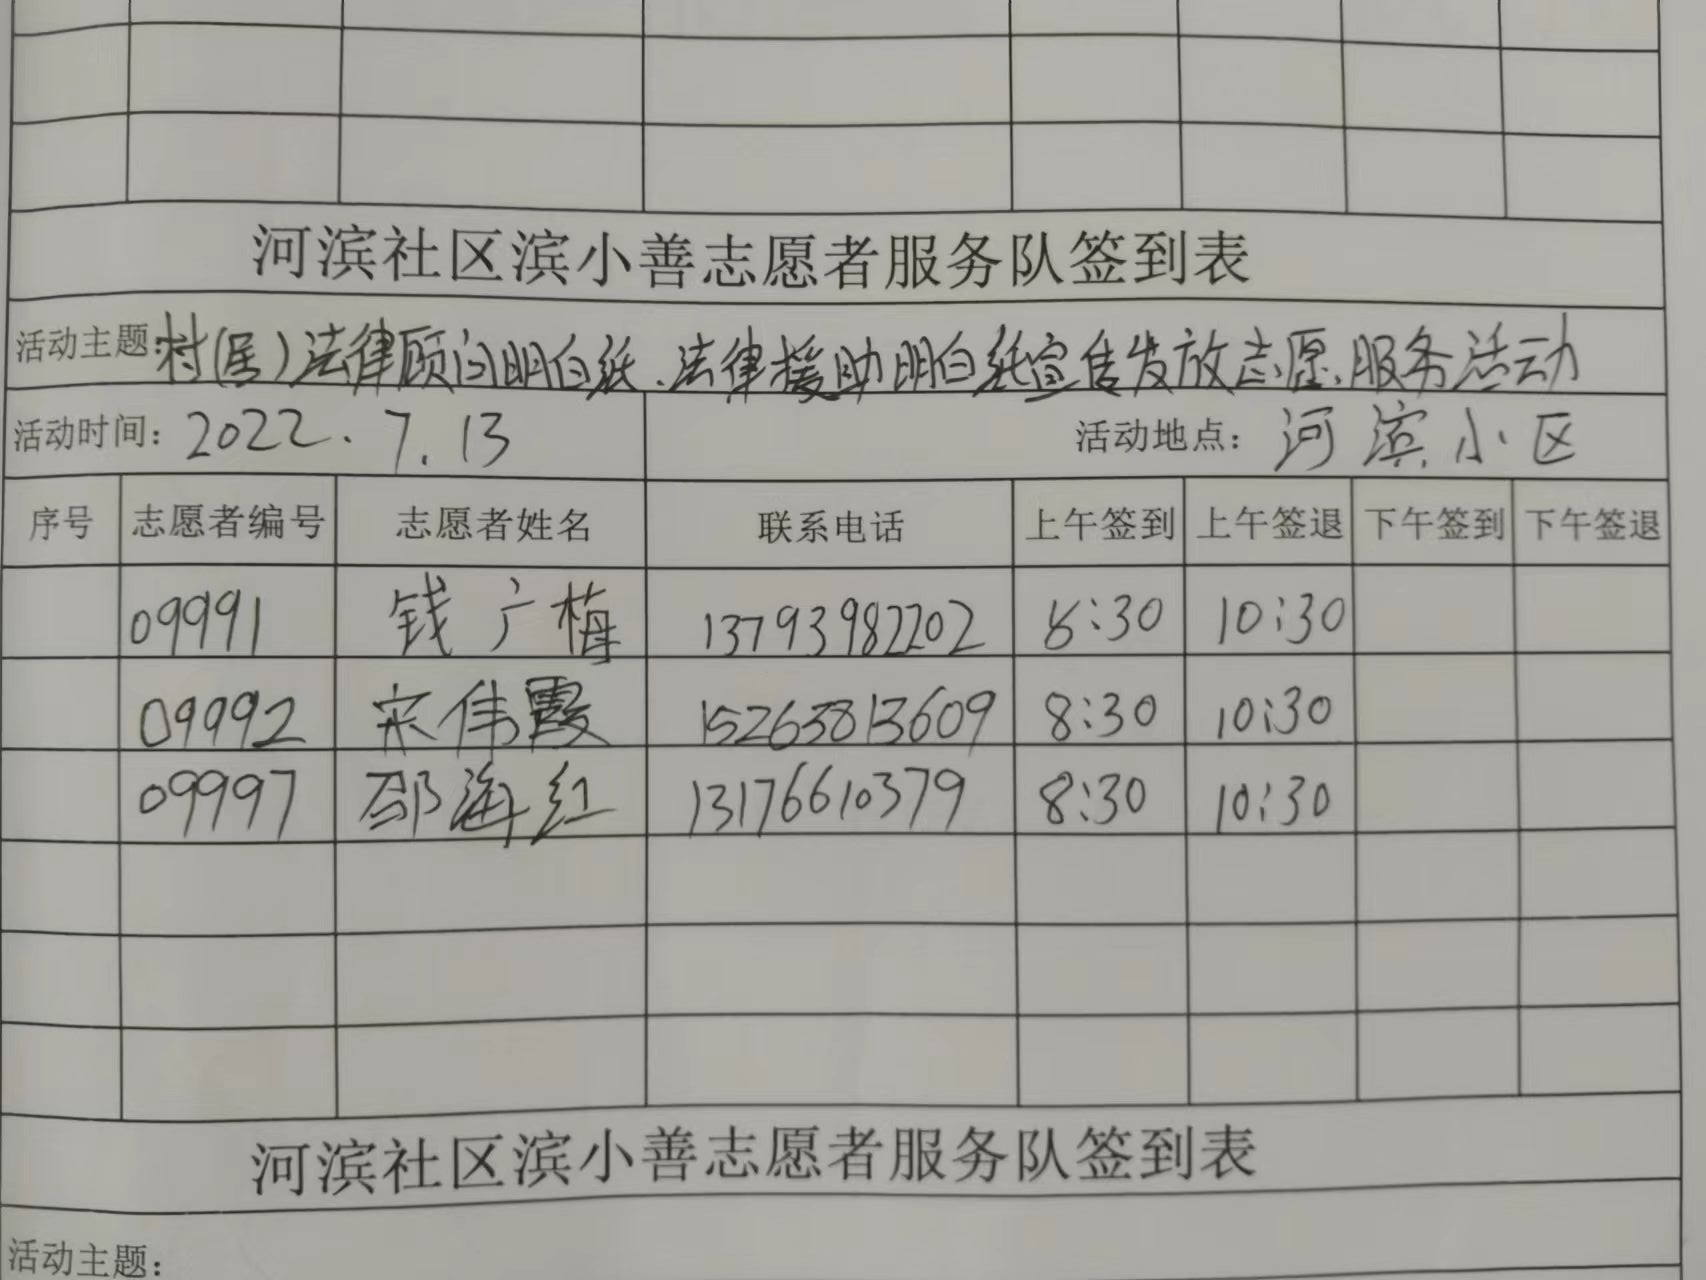 河滨社区滨小善志愿者服务队签到表
活动主题:村(居)法律顾问明白纸、法律援助明白纸宣传发放志愿服务活动
活动时间:2022.7.13 活动地点:河滨小区
序号 志愿者编号 志愿者姓名 联系电话 上午签到 上午签退 下午签到 下午签退
09991 钱广梅 13793982202 8:30 10:30
09992 宋伟霞 15263813609 8:30 10:30
09997 邵海红 13176610379 8:30 10:30
河滨社区滨小善志愿者服务队签到表
活动主题: